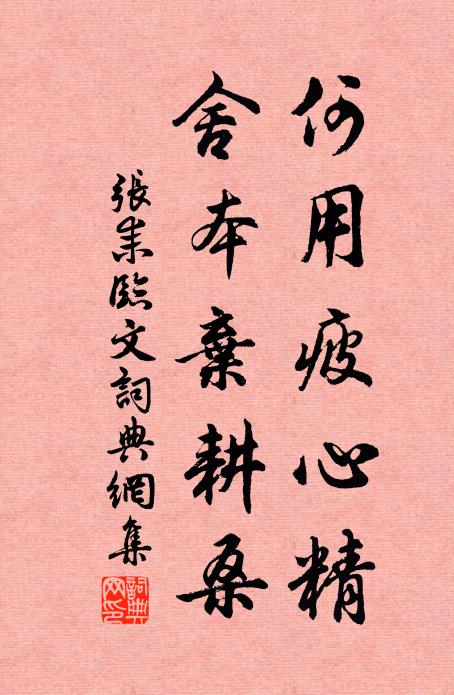 何用疲心精
舍本棄耕桑
張隼臨文詞典網集
詞典網印